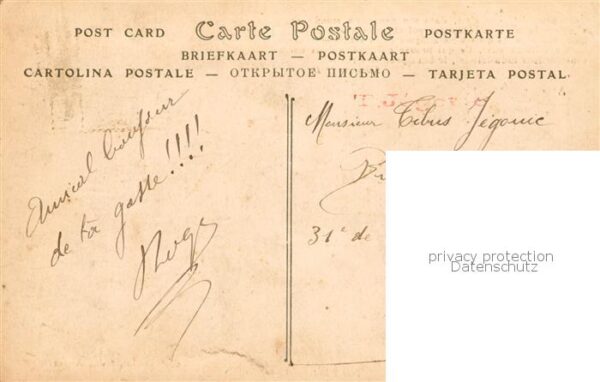 POST CARD Carte Postale POSTKARTE
BRIEFKAART — POSTKAART
CARTOLINA POSTALE — ОТКРЫТОЕ ПИСЬМО — TARJETA POSTAL
Amical bonjour
de ta gosse !!!!
Monsieur Titus Jégouic
31e de
privacy protection
Datenschutz